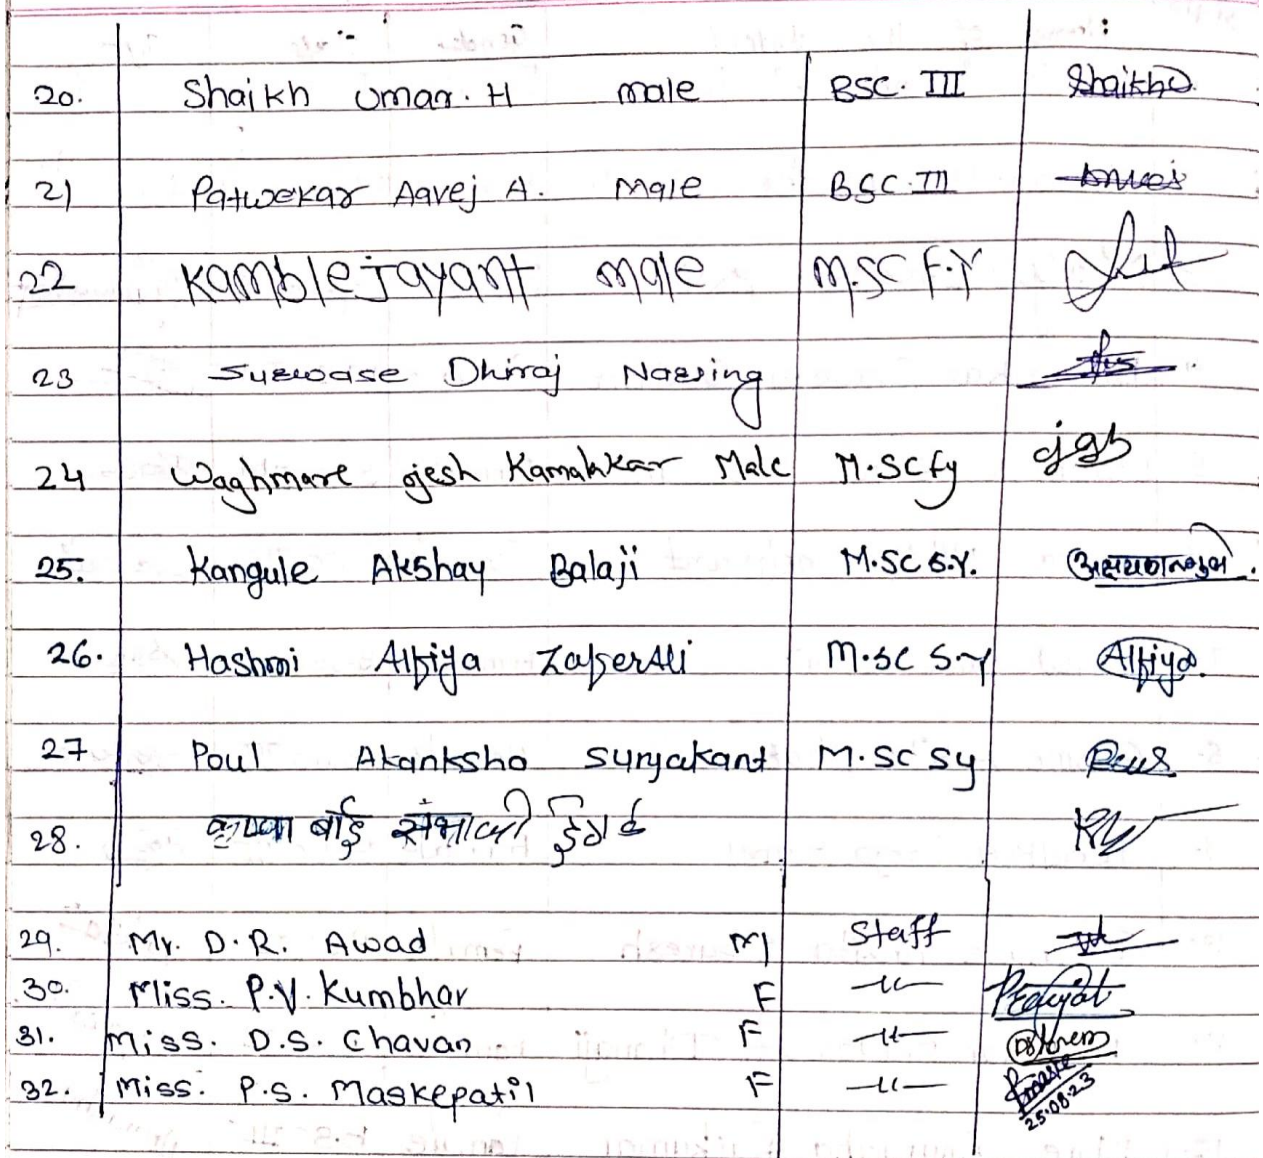 20. Shaikh Umar. H male BSC. III Shaikh
21 Patwekar Aavej A. Male BSC.III
22 Kamble Jayant male M.SC F.Y
23 Surwase Dhiraj Narsing
24 Waghmare ojesh Kamalakar Male M.SC fy
25. Kangule Akshay Balaji M.SC S.Y.
26. Hashmi Alfiya ZaferAli M.SC S.Y Alfiya.
27 Poul Akanksha Suryakant M.SC Sy Poul
28. बाई संभाजी
29. Mr. D.R. Awad M Staff
30. Miss. P.V. Kumbhar F -〃-
31. Miss. D.S. Chavan. F -〃-
32. Miss. P.S. Maskepatil F -〃-
25.08.23